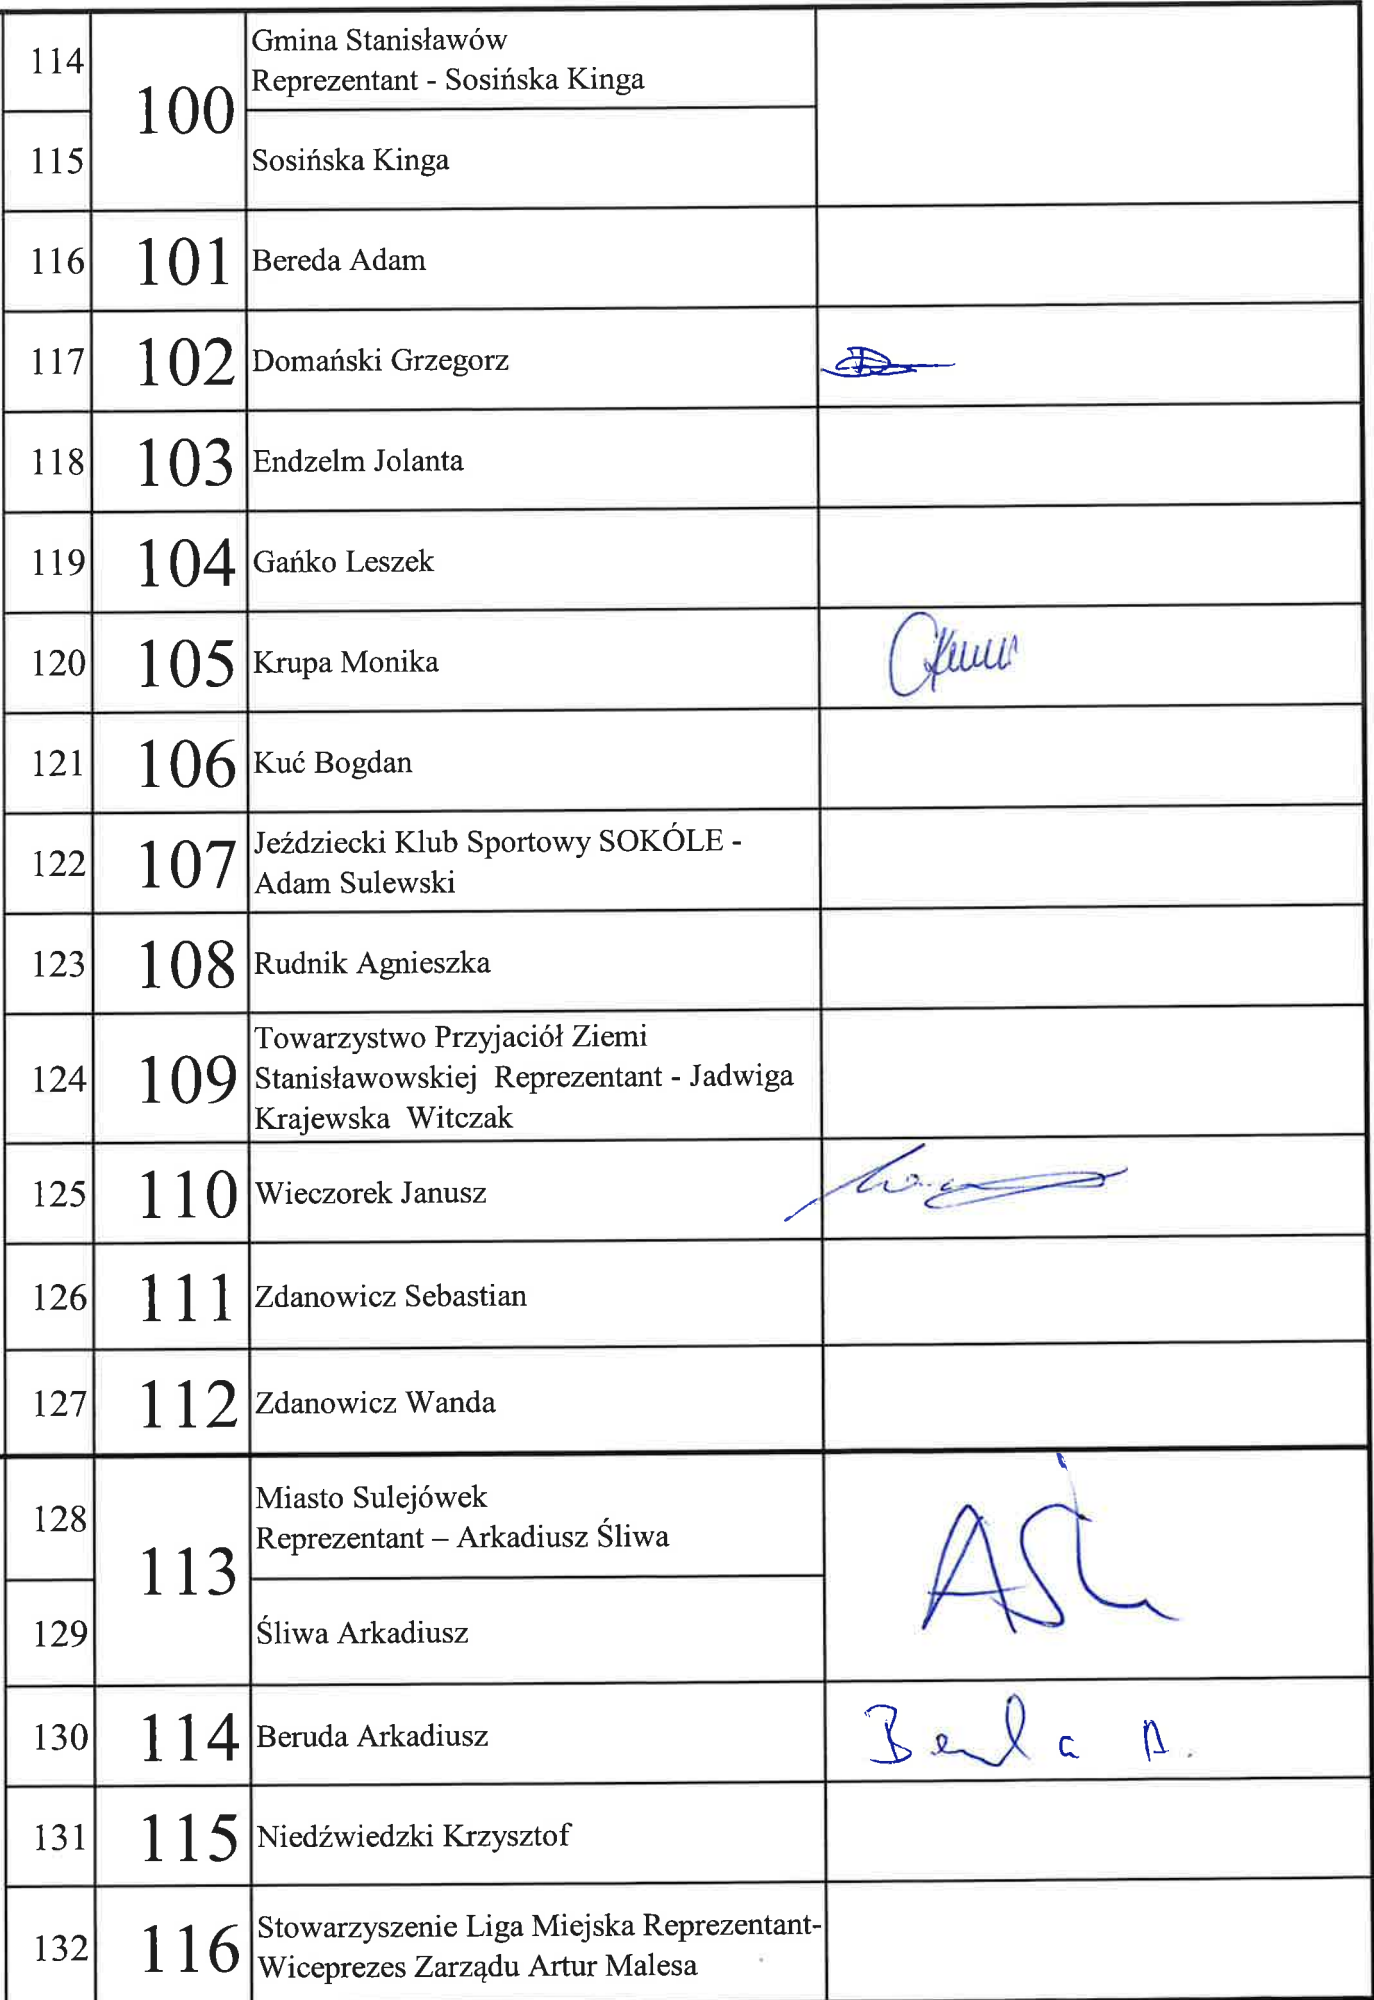 114
100
Gmina Stanisławów
Reprezentant - Sosińska Kinga
115
Sosińska Kinga
116 101 Bereda Adam
117 102 Domański Grzegorz
118 103 Endzelm Jolanta
119 104 Gańko Leszek
120 105 Krupa Monika
121 106 Kuć Bogdan
122 107 Jeździecki Klub Sportowy SOKÓLE -
Adam Sulewski
123 108 Rudnik Agnieszka
124 109 Towarzystwo Przyjaciół Ziemi
Stanisławowskiej Reprezentant - Jadwiga
Krajewska Witczak
125 110 Wieczorek Janusz
126 111 Zdanowicz Sebastian
127 112 Zdanowicz Wanda
128
113
Miasto Sulejówek
Reprezentant – Arkadiusz Śliwa
129
Śliwa Arkadiusz
130 114 Beruda Arkadiusz
131 115 Niedźwiedzki Krzysztof
132 116 Stowarzyszenie Liga Miejska Reprezentant-
Wiceprezes Zarządu Artur Malesa